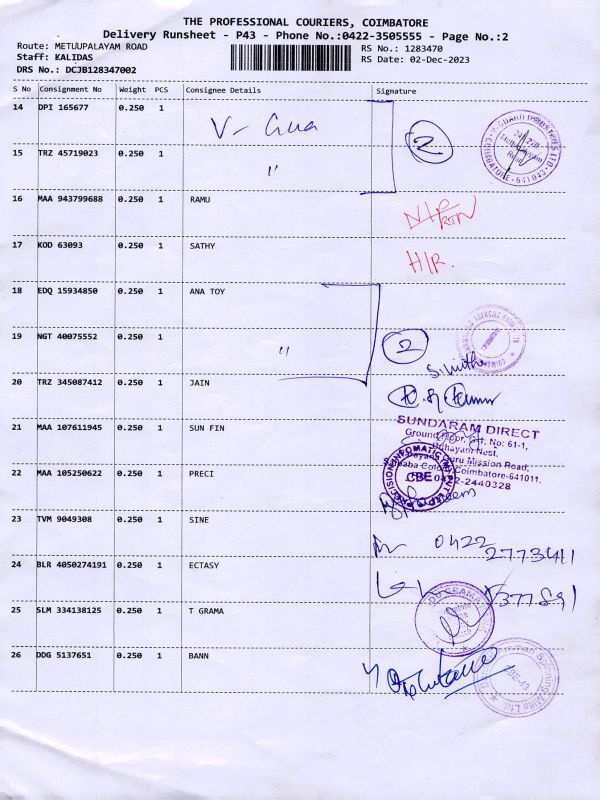 THE PROFESSIONAL COURIERS, COIMBATORE
Delivery Runsheet - P43 - Phone No.:0422-3505555 - Page No.:2
Route: METUUPALAYAM ROAD
RS No.: 1283470
Staff: KALIDAS
RS Date: 02-Dec-2023
DRS No.: DCJB128347002
S No Consignment No Weight PCS Consignee Details Signature
14 DPI 165677 0.250 1 V- Gua 2
15 TRZ 45719023 0.250 1 "
16 MAA 943799688 0.250 1 RAMU
17 KOD 63093 0.250 1 SATHY
18 EDQ 15934850 0.250 1 ANA TOY
19 NGT 40075552 0.250 1 " 2
20 TRZ 345087412 0.250 1 JAIN
21 MAA 107611945 0.250 1 SUN FIN
SUNDARAM DIRECT
No: 61-1,
Mission Road,
Coimbatore-641011.
2440328
22 MAA 105250622 0.250 1 PRECI
CBE
23 TVM 9049308 0.250 1 SINE
0422
2773411
24 BLR 4050274191 0.250 1 ECTASY
25 SLM 334138125 0.250 1 T GRAMA
26 DDG 5137651 0.250 1 BANN